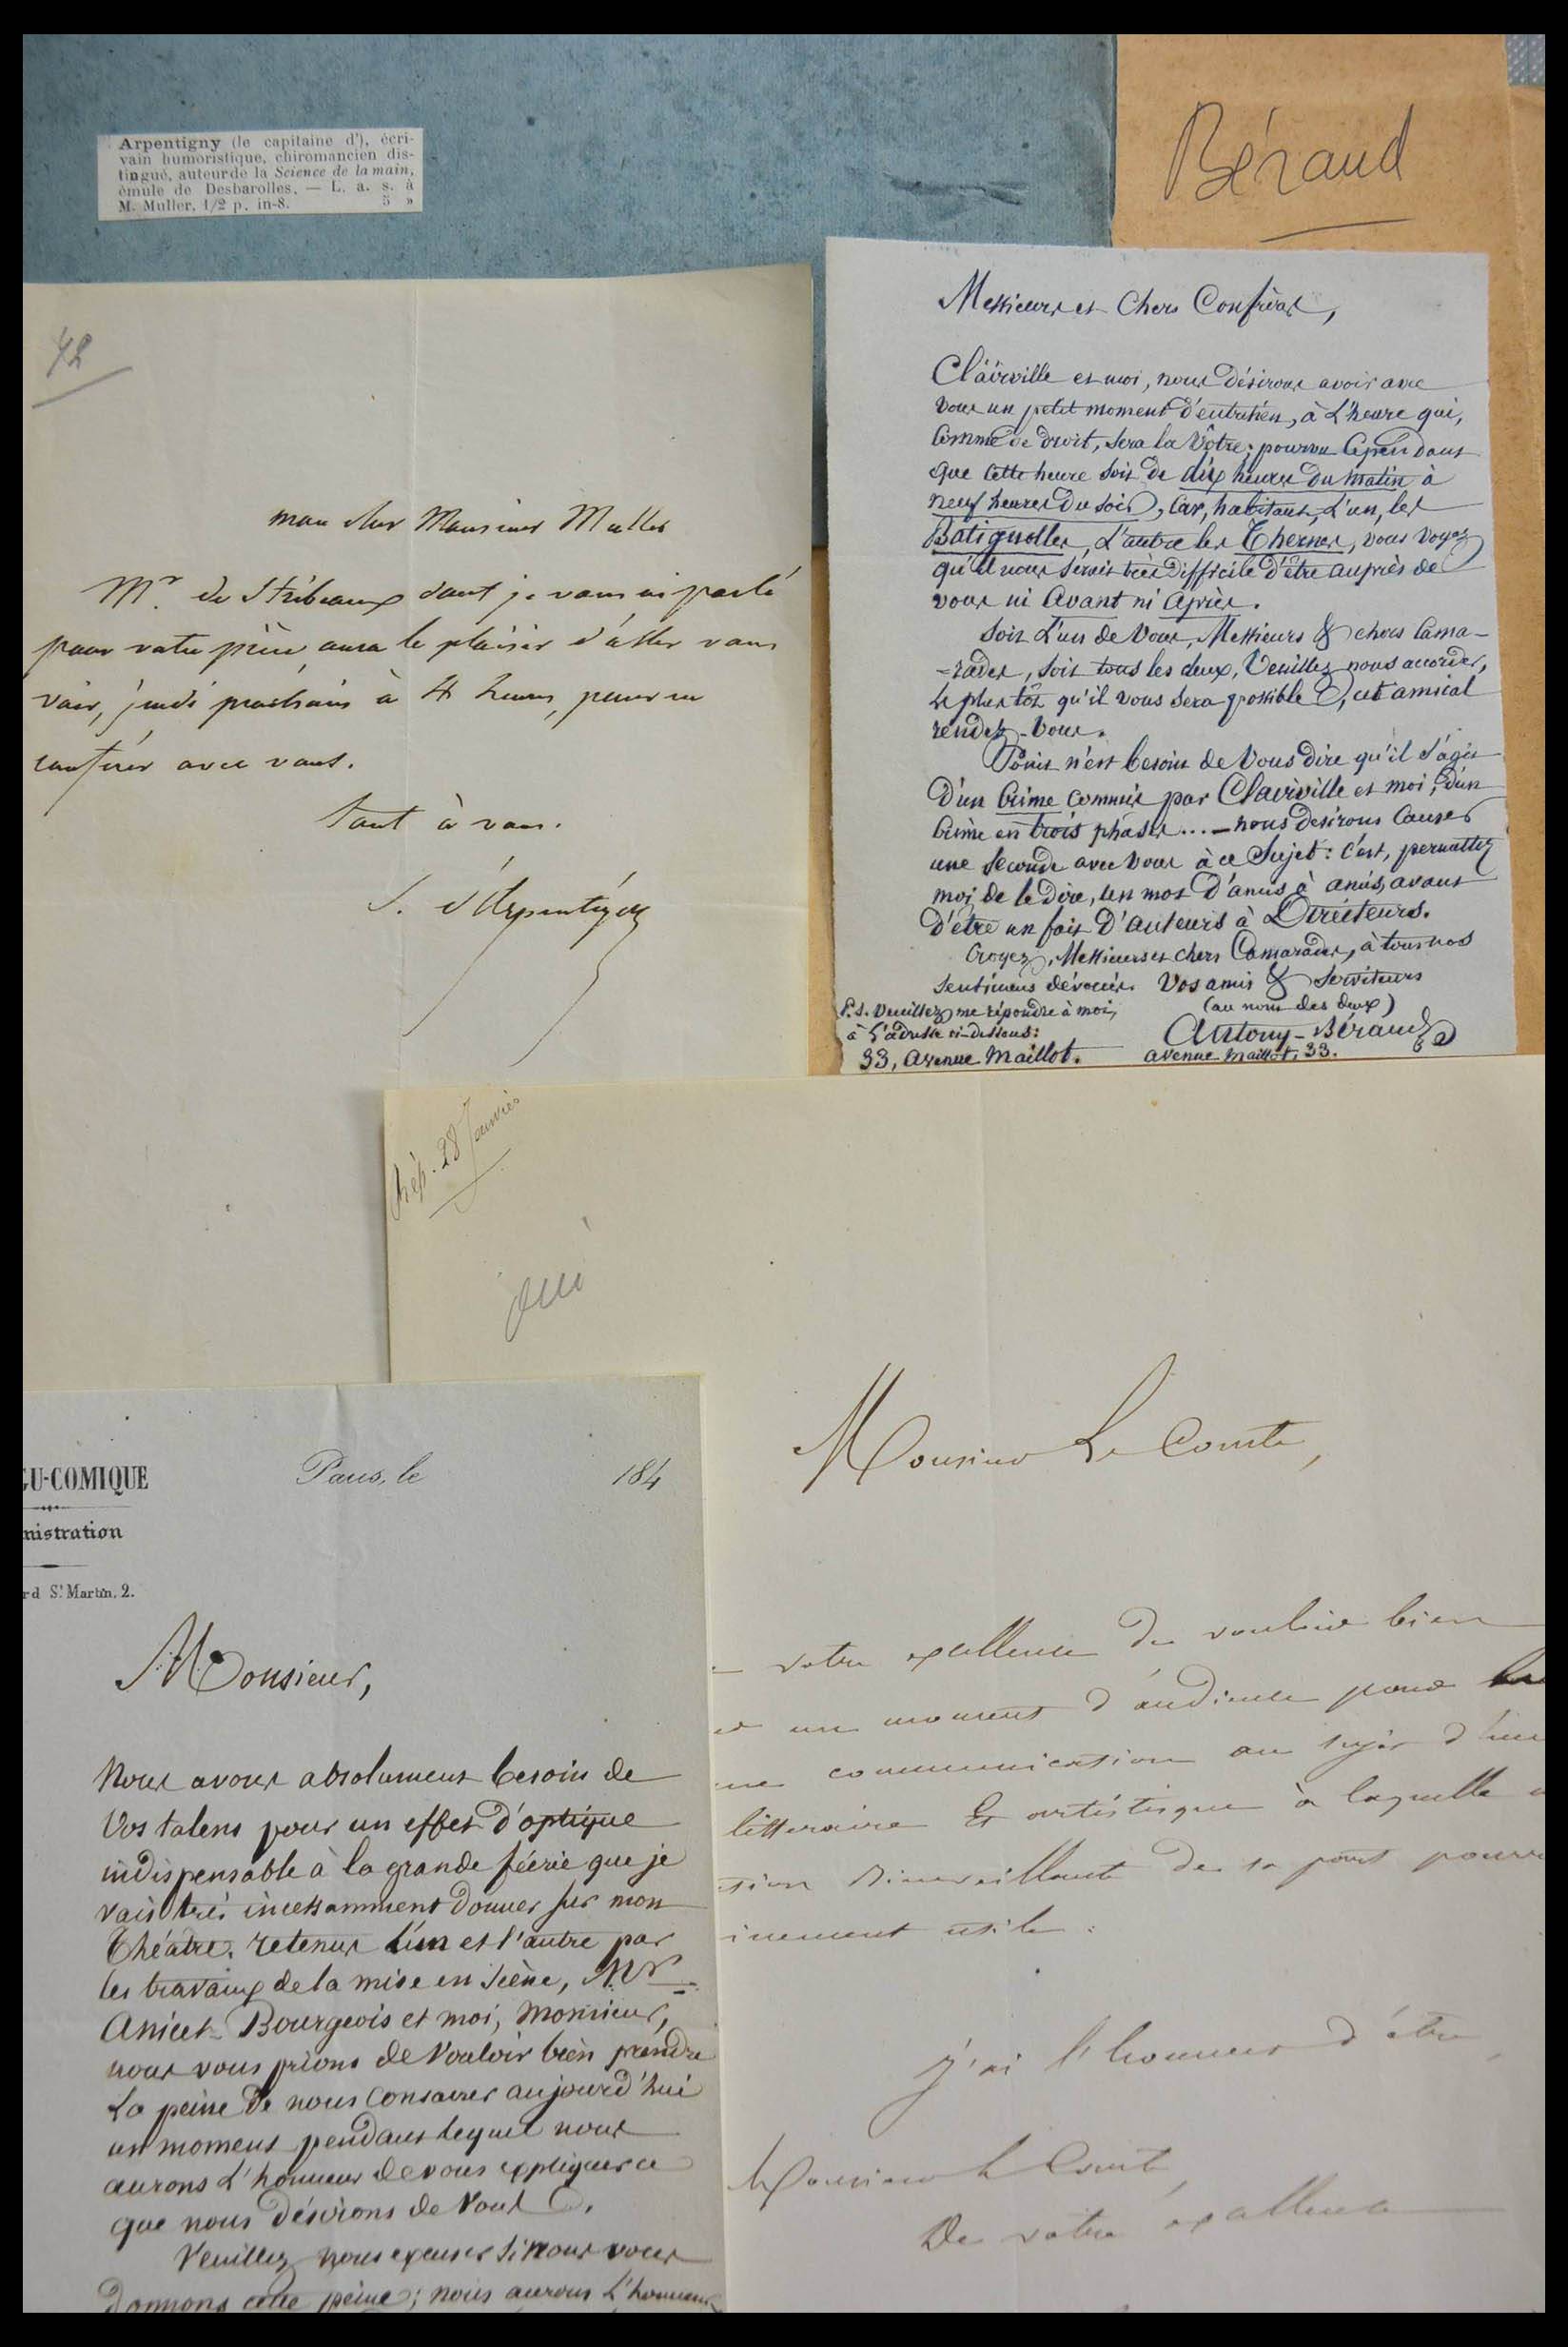 Arpentigny (le capitaine d'), écri-
vain humoristique, chiromancien dis-
tingué, auteur de la Science de la main,
émule de Desbarolles. — L. a. s. à
M. Muller, 1/2 p. in-8. 5 »
Béraud
42
mon cher Monsieur Muller
Mr. de dont je vous ai parlé
pour votre pièce, aura le plaisir d'aller vous
voir, jeudi prochain à 4 heures, pour en
conférer avec vous.
Tout à vous.
S. d'Arpentigny
Messieurs et Chers Confrères,
Clairville et moi, nous désirons avoir avec
vous un petit moment d'entretien, à L'heure qui,
comme de droit, sera la Vôtre; pourvu Cependant
que cette heure soit de dix heures du matin à
neuf heures Du soir, Car, habitant, L'un, les
Batignolles, L'autre les Thernes, vous voyez
qu'il nous serait très difficile d'être auprès de
vous ni Avant ni Après.
Soit L'un de Vous, Messieurs & chers Cama-
-rades, soit tous les deux, Veuillez nous accorder,
Le plus tôt qu'il vous sera possible, cet amical
rendez-vous.
Point n'est besoin de Vous dire qu'il s'agit
D'un Crime commis par Clairville et moi, d'un
Crime en trois phases.... – nous desirons Causer
une Seconde avec Vous à ce Sujet: C'est, permettez
moi de le dire, un mot D'amis à amis, avant
D'être un fait D'auteurs à Directeurs.
Croyez, Messieurs et chers Camarades, à tous nos
sentimens dévoués. Vos amis & serviteurs
(au nom des deux)
Antony-Béraud
avenue Maillot, 33.
P.S. Veuillez me répondre à moi,
à L'adresse ci-dessous:
33, Avenue Maillot.
rép. 28 Janvier
oui
Monsieur Le Comte,
votre excellence de vouloir bien
un moment d'audience pour
communication au sujet d'une
litteraire Et artistique à laquelle
bienveillante de sa part
utile.
J'ai l'honneur d'être,
Monsieur le Comte
De votre excellence
GU-COMIQUE
nistration
rd St Martin, 2.
Paris, le 184
Monsieur,
Nous avons absolument besoin de
Vos talens pour un effet d'optique
indispensable à la grande féerie que je
vais très incessamment donner sur mon
Théâtre. retenus L'un et l'autre par
les travaux de la mise en scène, Mr
Anicet-Bourgeois et moi, Monsieur,
nous vous prions de Vouloir bien prendre
La peine de nous Consacrer aujourd'hui
un moment pendant lequel nous
aurons L'honneur de vous expliquer ce
que nous désirons de Vous.
Veuillez nous excuser si nous vous
Donnons cette peine; nous aurons L'honneur